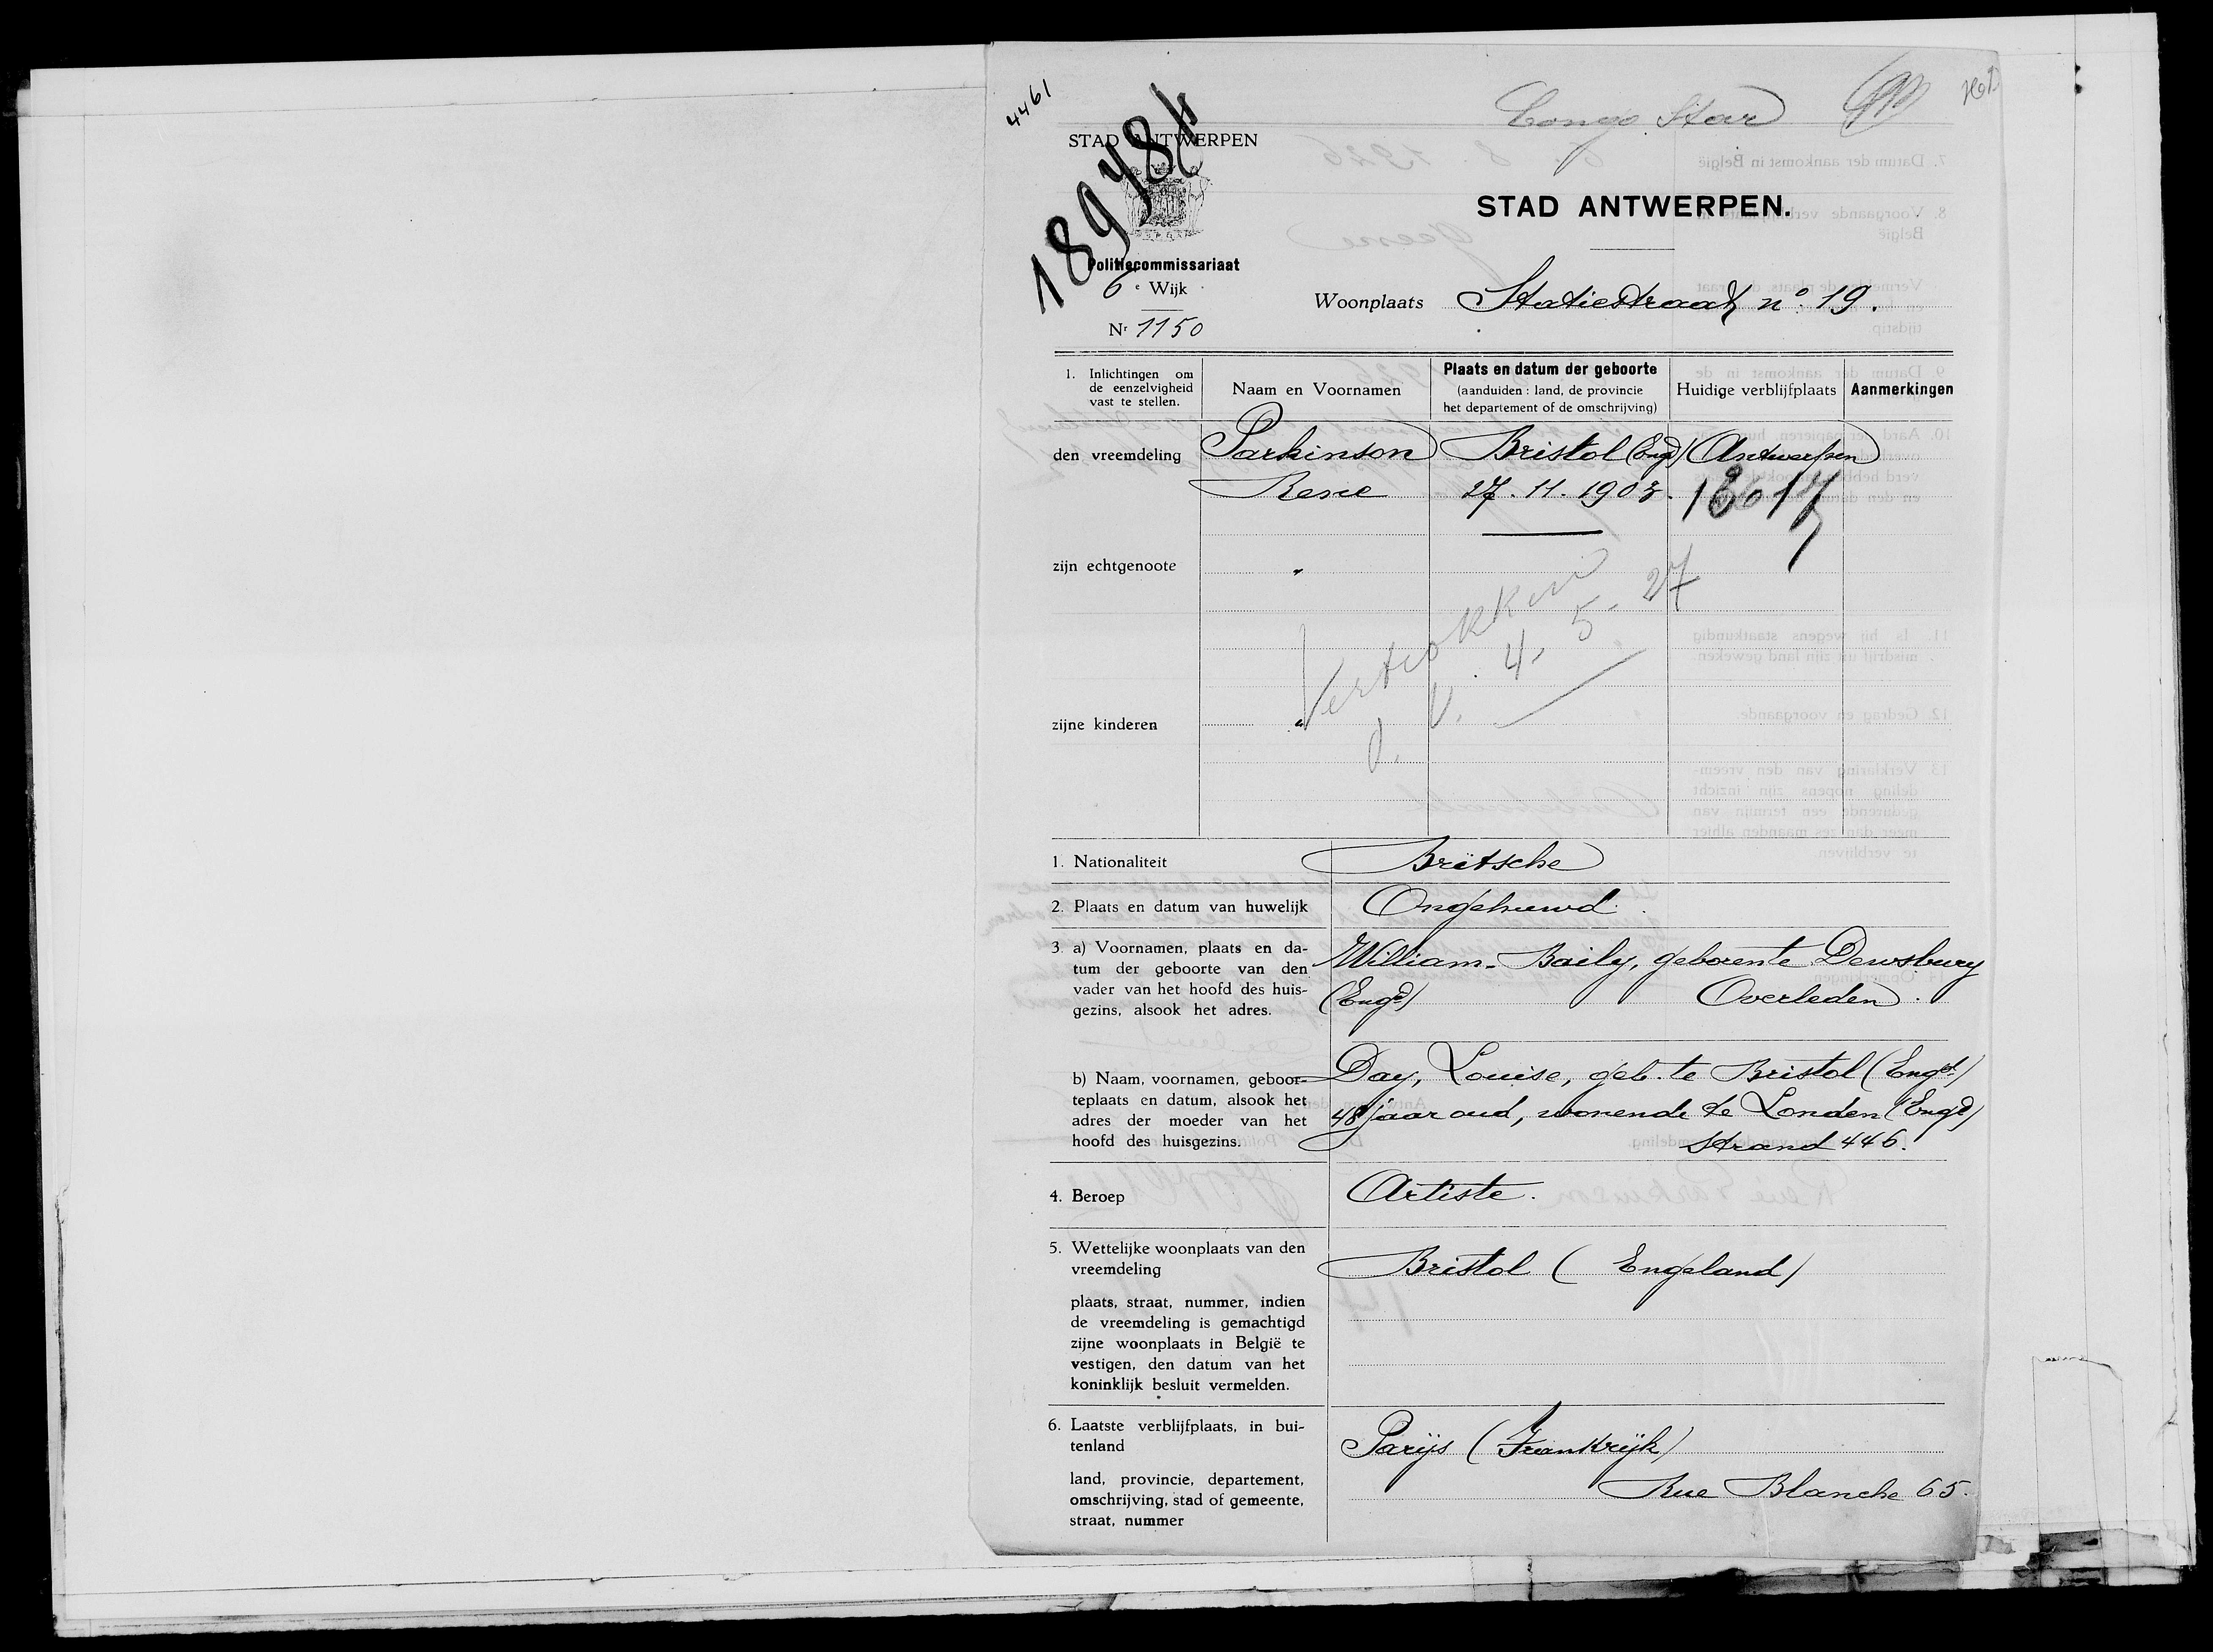 4461
Congo Star
STAD ANTWERPEN
189484
STAD ANTWERPEN.
Politiecommissariaat
6e Wijk
Woonplaats Statiestraat, nº 19.
Nr 1150
1. Inlichtingen om
de eenzelvigheid
vast te stellen.
Naam en Voornamen
Plaats en datum der geboorte
(aanduiden : land, de provincie
het departement of de omschrijving)
Huidige verblijfplaats
Aanmerkingen
den vreemdeling Parkinson Bristol (Engd) Antwerpen
Rene 27.11.1903. 13017
zijn echtgenoote "
Vertrokken
4. 5. 27
zijne kinderen "
1. Nationaliteit Britsche
2. Plaats en datum van huwelijk Ongehuwd.
3. a) Voornamen, plaats en da-
tum der geboorte van den
vader van het hoofd des huis-
gezins, alsook het adres.
William-Baily, geboren te Dewsbury
(Engd) Overleden.
b) Naam, voornamen, geboor-
teplaats en datum, alsook het
adres der moeder van het
hoofd des huisgezins.
Day, Louise, geb. te Bristol (Engd)
48 jaar oud, wonende te Londen (Engd)
Strand 446.
4. Beroep Artiste.
5. Wettelijke woonplaats van den
vreemdeling
Bristol (Engeland)
plaats, straat, nummer, indien
de vreemdeling is gemachtigd
zijne woonplaats in België te
vestigen, den datum van het
koninklijk besluit vermelden.
6. Laatste verblijfplaats, in bui-
tenland
Parijs (Frankrijk)
land, provincie, departement,
omschrijving, stad of gemeente,
straat, nummer
Rue Blanche 65.